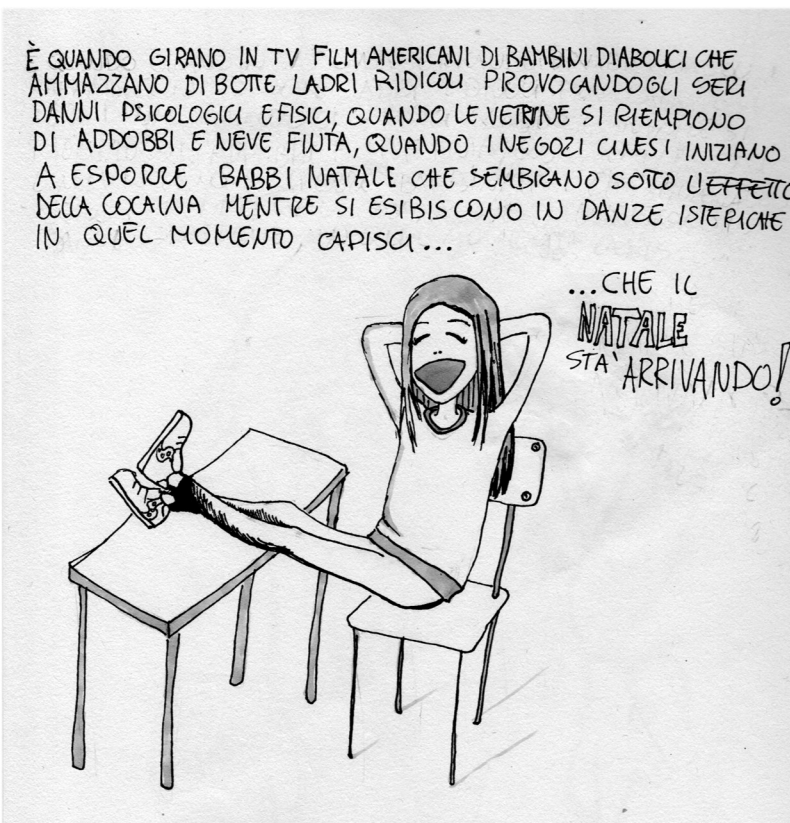 È QUANDO GIRANO IN TV FILM AMERICANI DI BAMBINI DIABOLICI CHE
AMMAZZANO DI BOTTE LADRI RIDICOLI PROVOCANDOGLI SERI
DANNI PSICOLOGICI E FISICI, QUANDO LE VETRINE SI RIEMPIONO
DI ADDOBBI E NEVE FINTA, QUANDO I NEGOZI CINESI INIZIANO
A ESPORRE BABBI NATALE CHE SEMBRANO SOTTO L'EFFETTO
DELLA COCAINA MENTRE SI ESIBISCONO IN DANZE ISTERICHE
IN QUEL MOMENTO CAPISCI...
...CHE IL
NATALE
STA' ARRIVANDO!